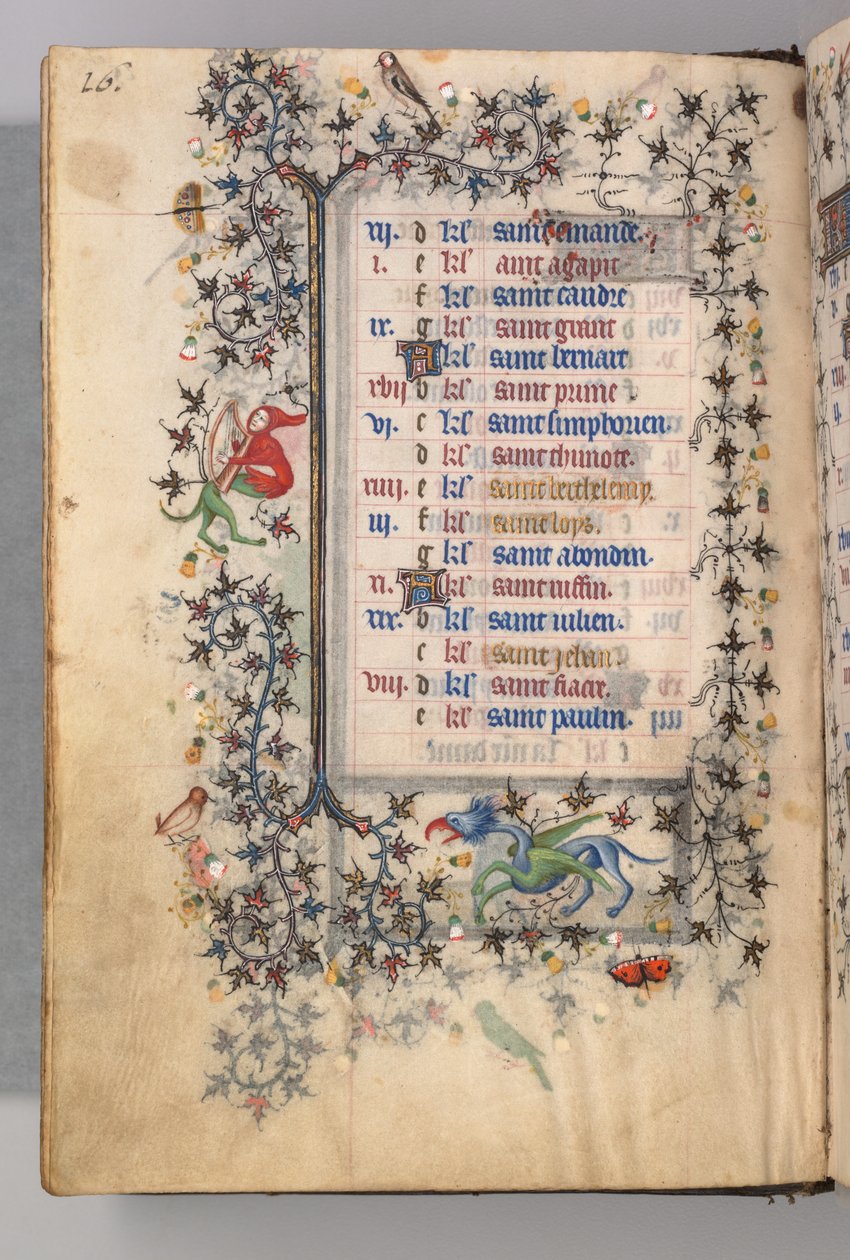 26.
xij. d kl' saint mande.
i. e kl' aint agapit
f kl' saint candre
ix. g kl' saint giuant
A kl' saint bernart
xvij b kl' saint prime
vi. c kl' saint simphorien.
d kl' saint thimote.
xiiij. e kl' saint berthelemy.
iij. f kl' saint loys.
g kl' saint abondin.
xi. A kl' saint ruffin.
xix. b kl' saint iulien.
c kl' saint jehan.
viij. d kl' saint fiacre.
e kl' saint paulin.